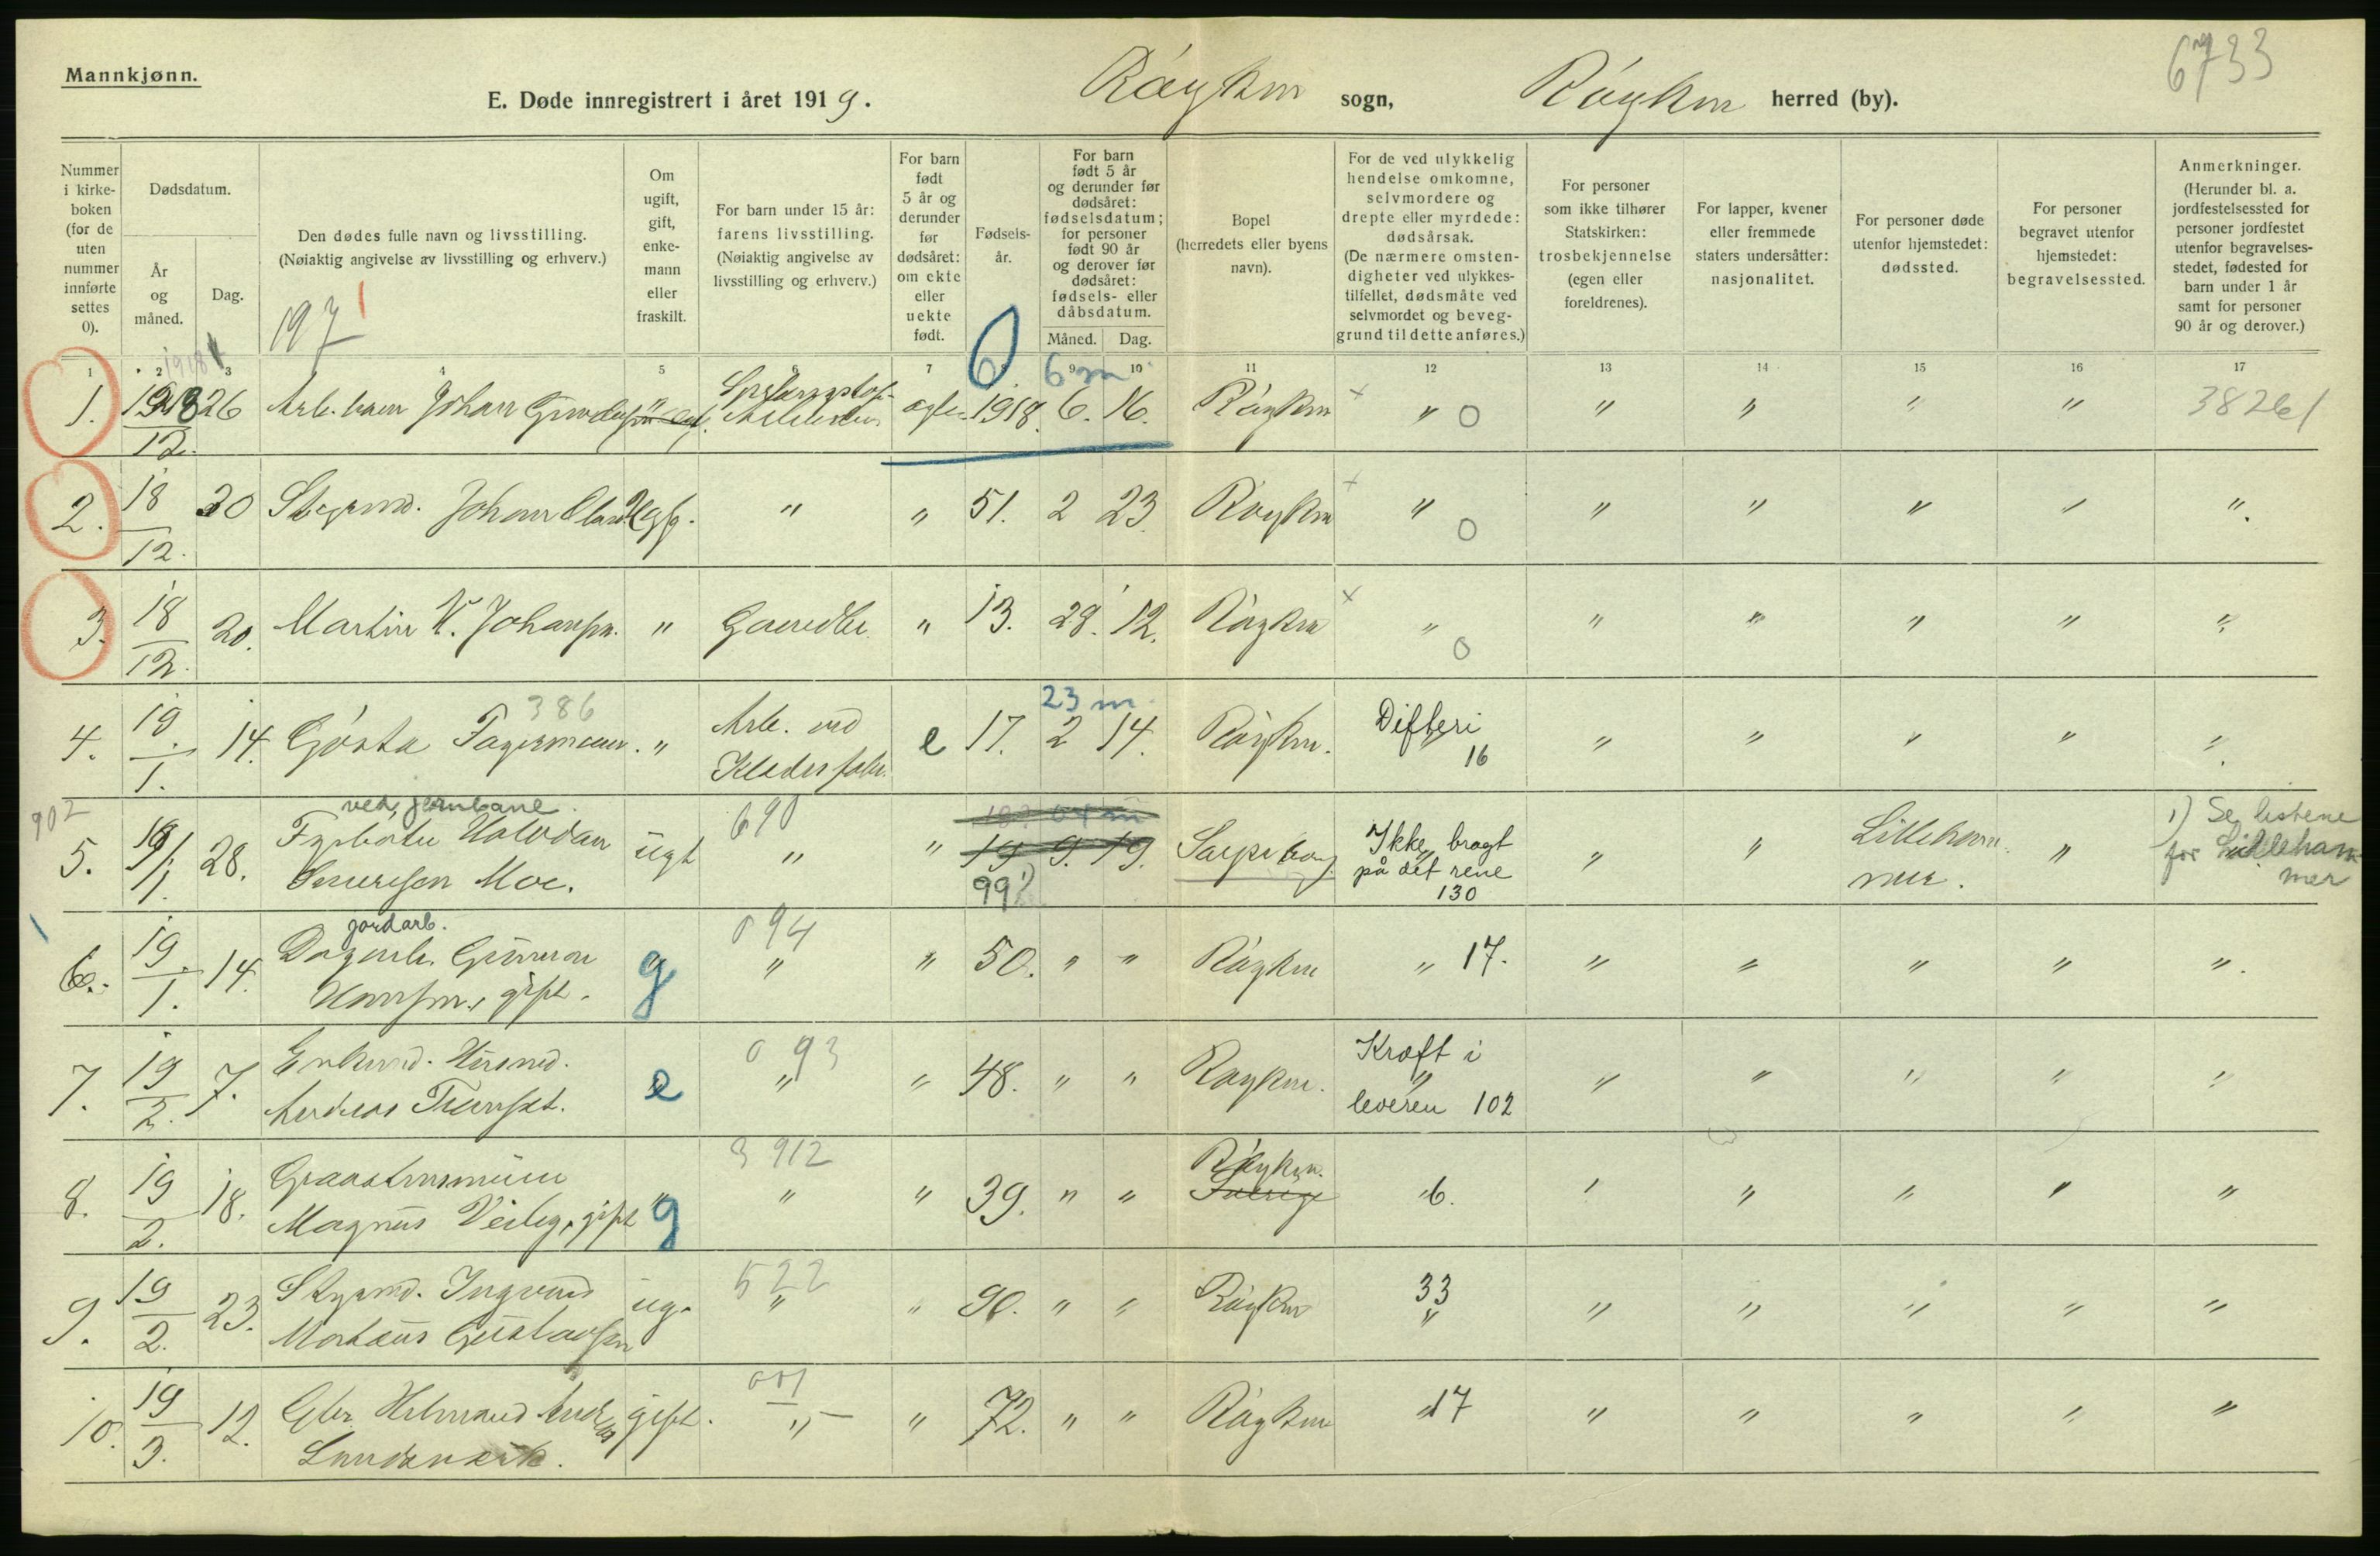 Mannkjønn.
6733
E. Døde innregistrert i året 1919. Røyken sogn, Røyken herred (by).
Nummer i kirke-boken (for de uten nummer innførte settes 0).
Dødsdatum.
År og måned.
Dag.
Den dødes fulle navn og livsstilling.
(Nøiaktig angivelse av livsstilling og erhverv.)
Om ugift, gift, enke-mann eller fraskilt.
For barn under 15 år: farens livsstilling.
(Nøiaktig angivelse av livsstilling og erhverv.)
For barn født 5 år og derunder før dødsåret: om ekte eller uekte født.
Fødsels-år.
For barn født 5 år og derunder før dødsåret: fødselsdatum; for personer født 90 år og derover før dødsåret: fødsels- eller dåbsdatum.
Måned. Dag.
Bopel (herredets eller byens navn).
For de ved ulykkelig hendelse omkomne, selvmordere og drepte eller myrdede: dødsårsak.
(De nærmere omsten-digheter ved ulykkes-tilfellet, dødsmåte ved selvmordet og beveg-grund til dette anføres.)
For personer som ikke tilhører Statskirken: trosbekjennelse (egen eller foreldrenes).
For lapper, kvener eller fremmede staters undersåtter: nasjonalitet.
For personer døde utenfor hjemstedet: dødssted.
For personer begravet utenfor hjemstedet: begravelsessted.
Anmerkninger.
(Herunder bl. a. jordfestelsessted for personer jordfestet utenfor begravelses-stedet, fødested for barn under 1 år samt for personer 90 år og derover.)
197
1 2 3 4 5 7 9 10 11 12 13 14 15 16 17
6 6 m
1. 1918 12. 26 Johan 1918. 6. 16. Røyken " 0 " " " " 38261
2. 18 12. 20 Johan Ugg. " " 51. 2 23 Røyken " 0 " " " " "
3. 18 12. 20. Martin Johansen. " " 13. 28. 12. Røyken " 0 " " " " "
386 23 m
4. 19 1. 14. Gösta Fagerman. " Arb. ved e 17. 2 14. Røyken. Difteri 16 " " " " "
902 ved jernbane 690
5. 19 1. 28. Fyrbøter Halvdan Moe. ugt " " 19 9. 19. 99 1) Sarpsborg Ikke bragt på det rene 130 " " Lillehammer. " 1) Se listene for Lillehammer
jordarb. 094
6. 19 1. 14. Dagarb. Gunnar Hansen, gift. g " " 50. " " Røyken " 17. " " " " "
093
7. 19 2. 7. Enkemd. Husmd. Andreas e " " 48. " " Røyken. Kræft i leveren 102 " " " " "
912
8. 19 2. 18. Magnus gift g " " 39. " " Røyken. Sverige " 6. " " " " "
522
9. 19 2. 23. Styrmd. Ingvald Gustavsen ug. " " 90. " " Røyken 33 " " " " " "
001
10. 19 3. 12. Gbr. gift. " " 72. " " Røyken " 17 " " " " "